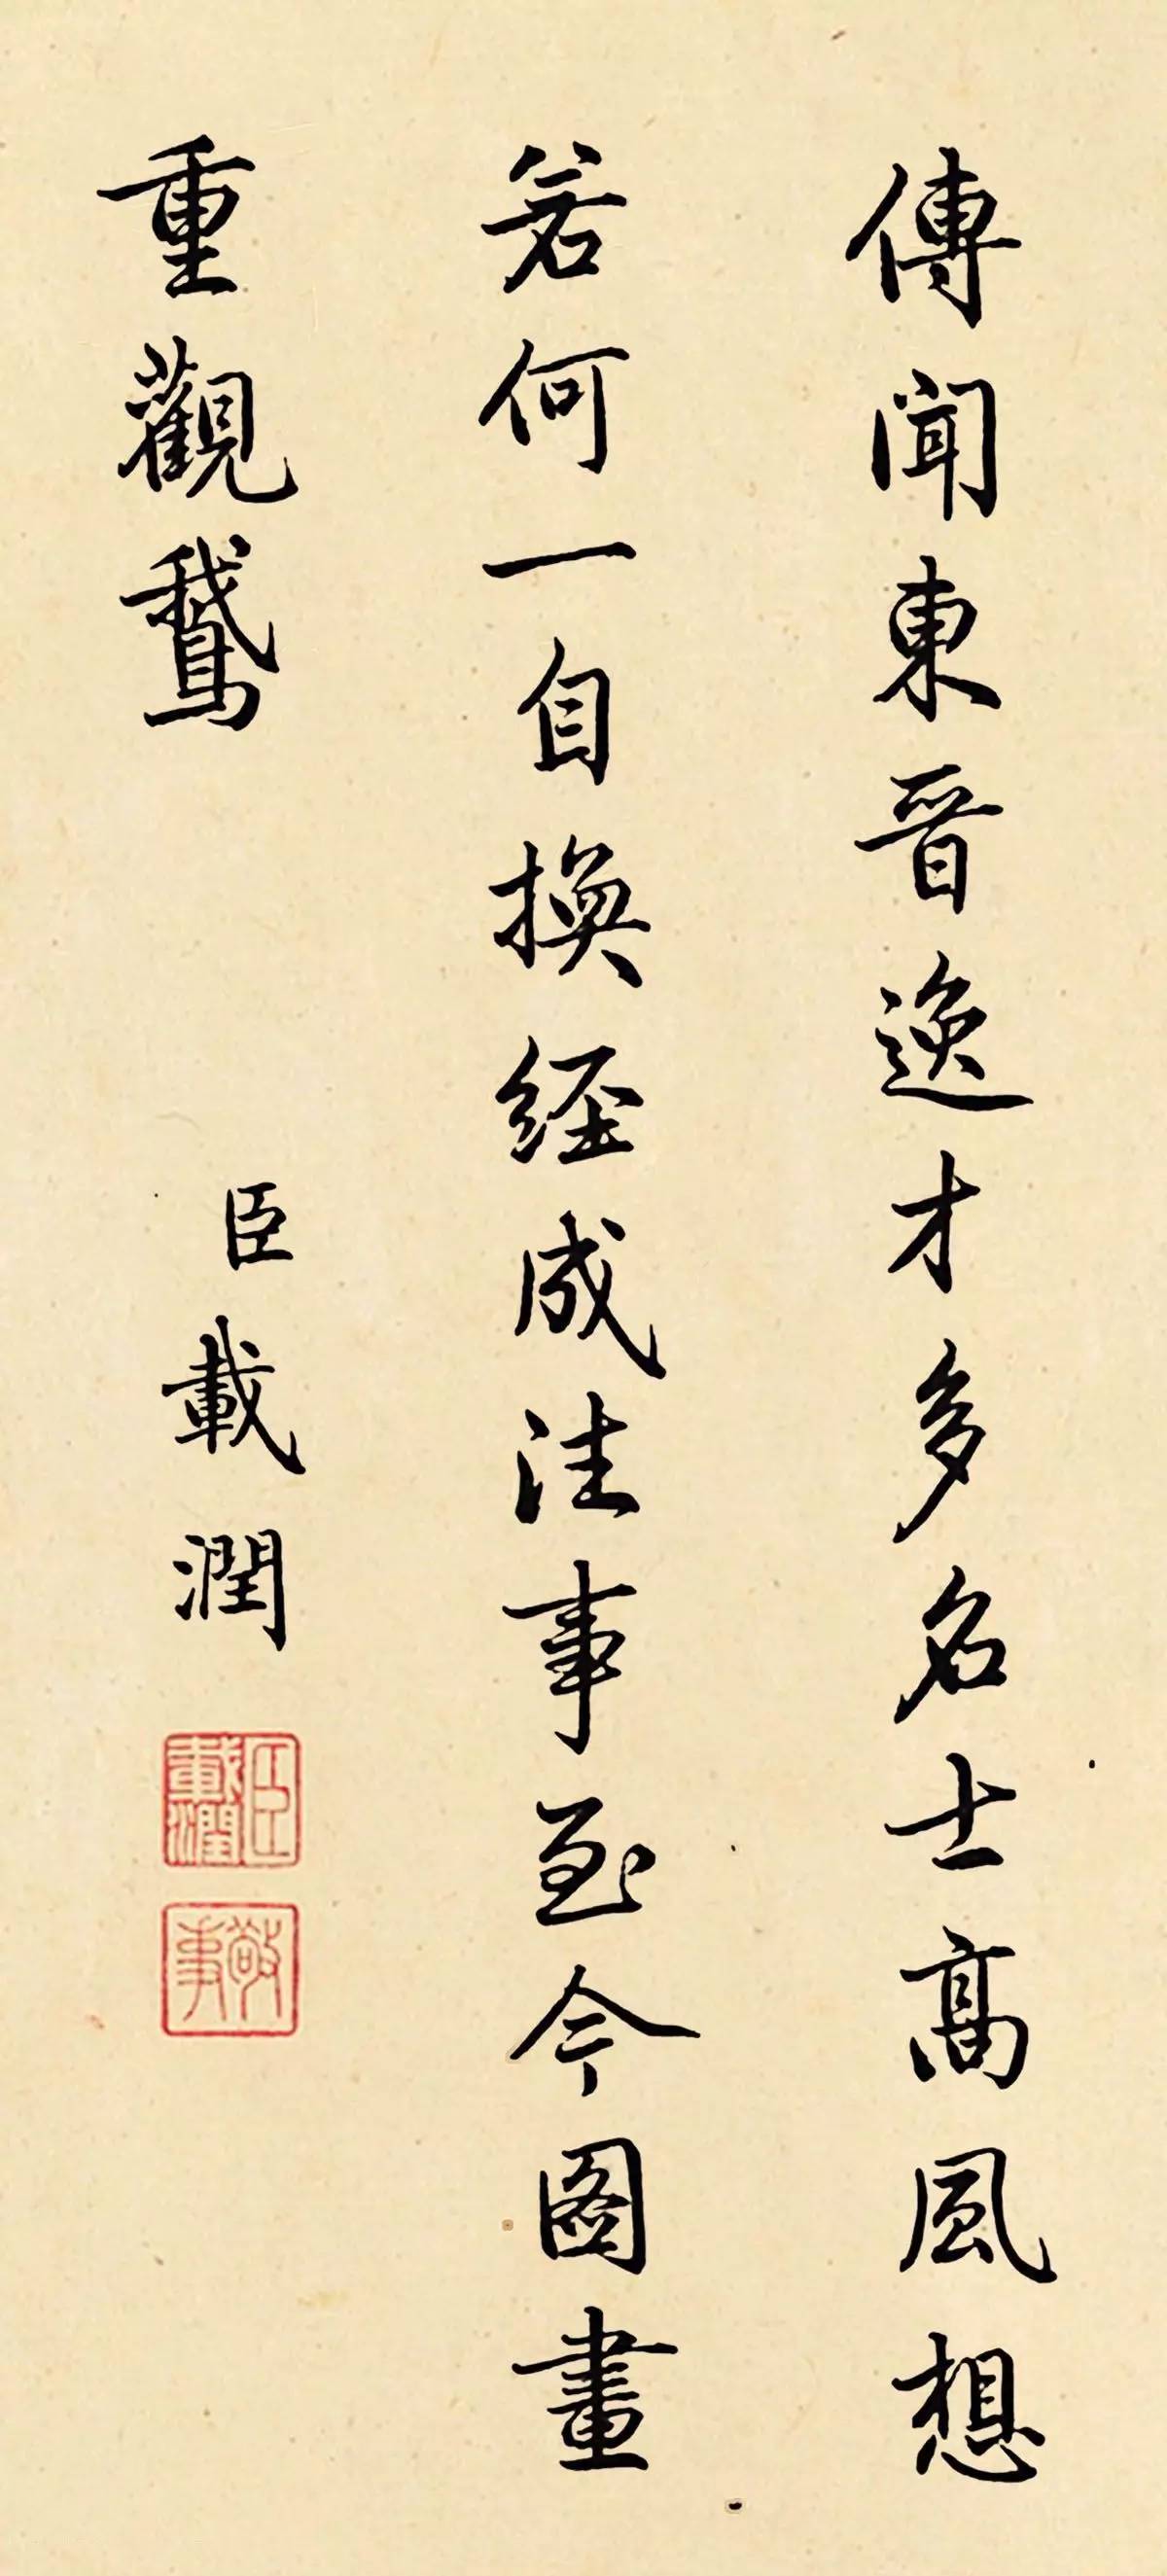 傳聞東晉逸才多名士高風想
若何一自換經成法事至今圖畫
重觀鵝
臣載潤
臣載潤
敬事